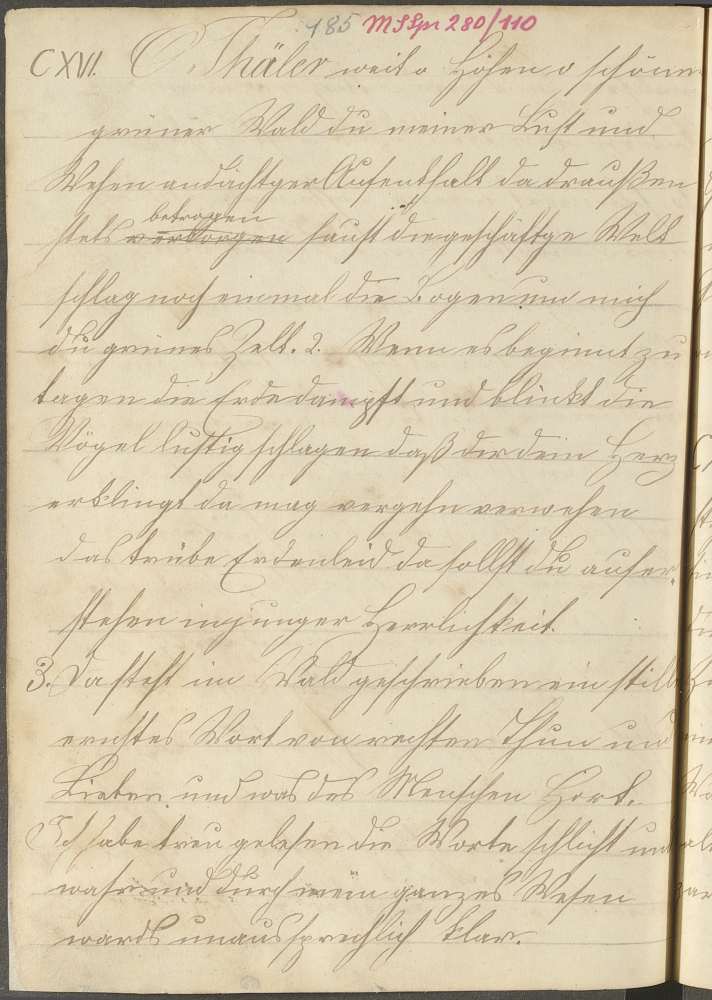 185 MSSpr 280/110
CXVI. O Thäler weit o Höhen o schöner
grüner Wald du meiner Lust und
Wehen andächtger Aufenthalt da draußen
betrogen
stets verborgen saust die geschäftge Welt
schlag noch einmal die Bogen um mich
du grünes Zelt. 2. Wenn es beginnt zu
tagen die Erde dampft und blinkt die
Vögel lustig schlagen daß dir dein Herz
erklingt da mag vergehn verwehen
das trübe Erdenleid da sollst du aufer-
stehen in junger Herrlichkeit.
3. Da steht im Wald geschrieben ein stilles
ernstes Wort von rechten Thun und
Lieben und was des Menschen Hort.
Ich habe treu gelesen die Worte schlicht und
wahr und durch mein ganzes Wesen
wards unaussprechlich klar.